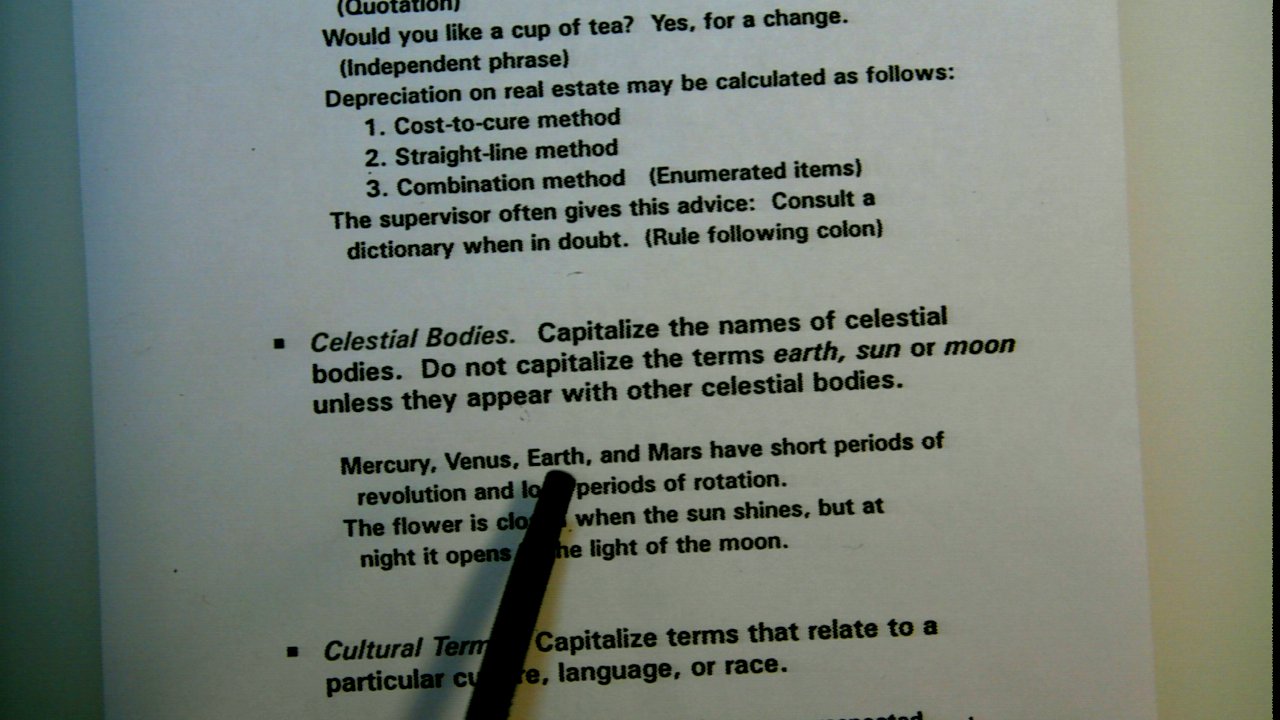 (Quotation)
Would you like a cup of tea? Yes, for a change.
(Independent phrase)
Depreciation on real estate may be calculated as follows:
1. Cost-to-cure method
2. Straight-line method
3. Combination method (Enumerated items)
The supervisor often gives this advice: Consult a
dictionary when in doubt. (Rule following colon)
▪ Celestial Bodies. Capitalize the names of celestial
bodies. Do not capitalize the terms earth, sun or moon
unless they appear with other celestial bodies.
Mercury, Venus, Earth, and Mars have short periods of
revolution and periods of rotation.
The flower is when the sun shines, but at
night it opens light of the moon.
▪ Cultural Capitalize terms that relate to a
particular language, or race.